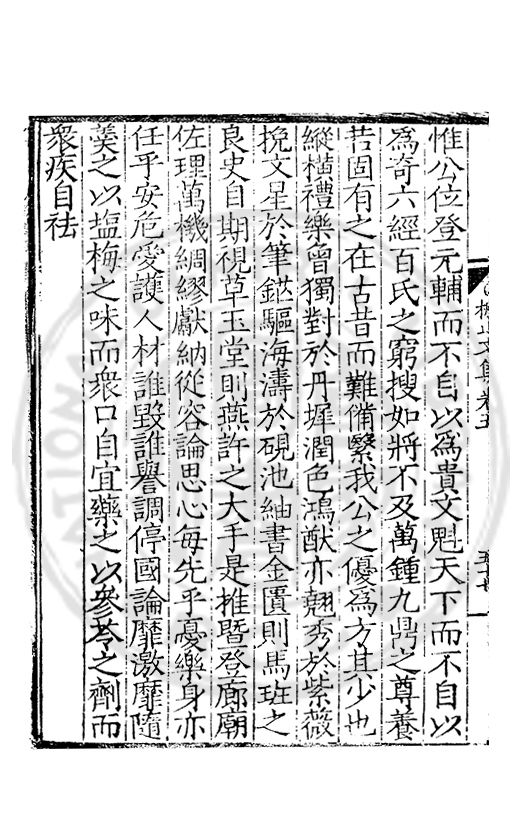 惟公位登元輔而不自以爲貴文魁天下而不自以
爲奇六經百氏之窮搜如將不及萬鍾九鼎之尊養
若固有之在古昔而難備繄我公之優爲方其少也
縱橫禮樂曾獨對於丹墀潤色鴻猷亦翹秀於紫薇
挽文星於筆鋩驅海濤於硯池紬書金匱則馬班之
良史自期視草玉堂則燕許之大手是推曁登廊廟
佐理萬機綢繆獻納從容論思心每先乎憂樂身亦
任乎安危愛護人材誰毀誰譽調停國論靡激靡隨
羹之以塩梅之味而衆口自宜藥之以參苓之劑而
衆疾自祛
文集卷五